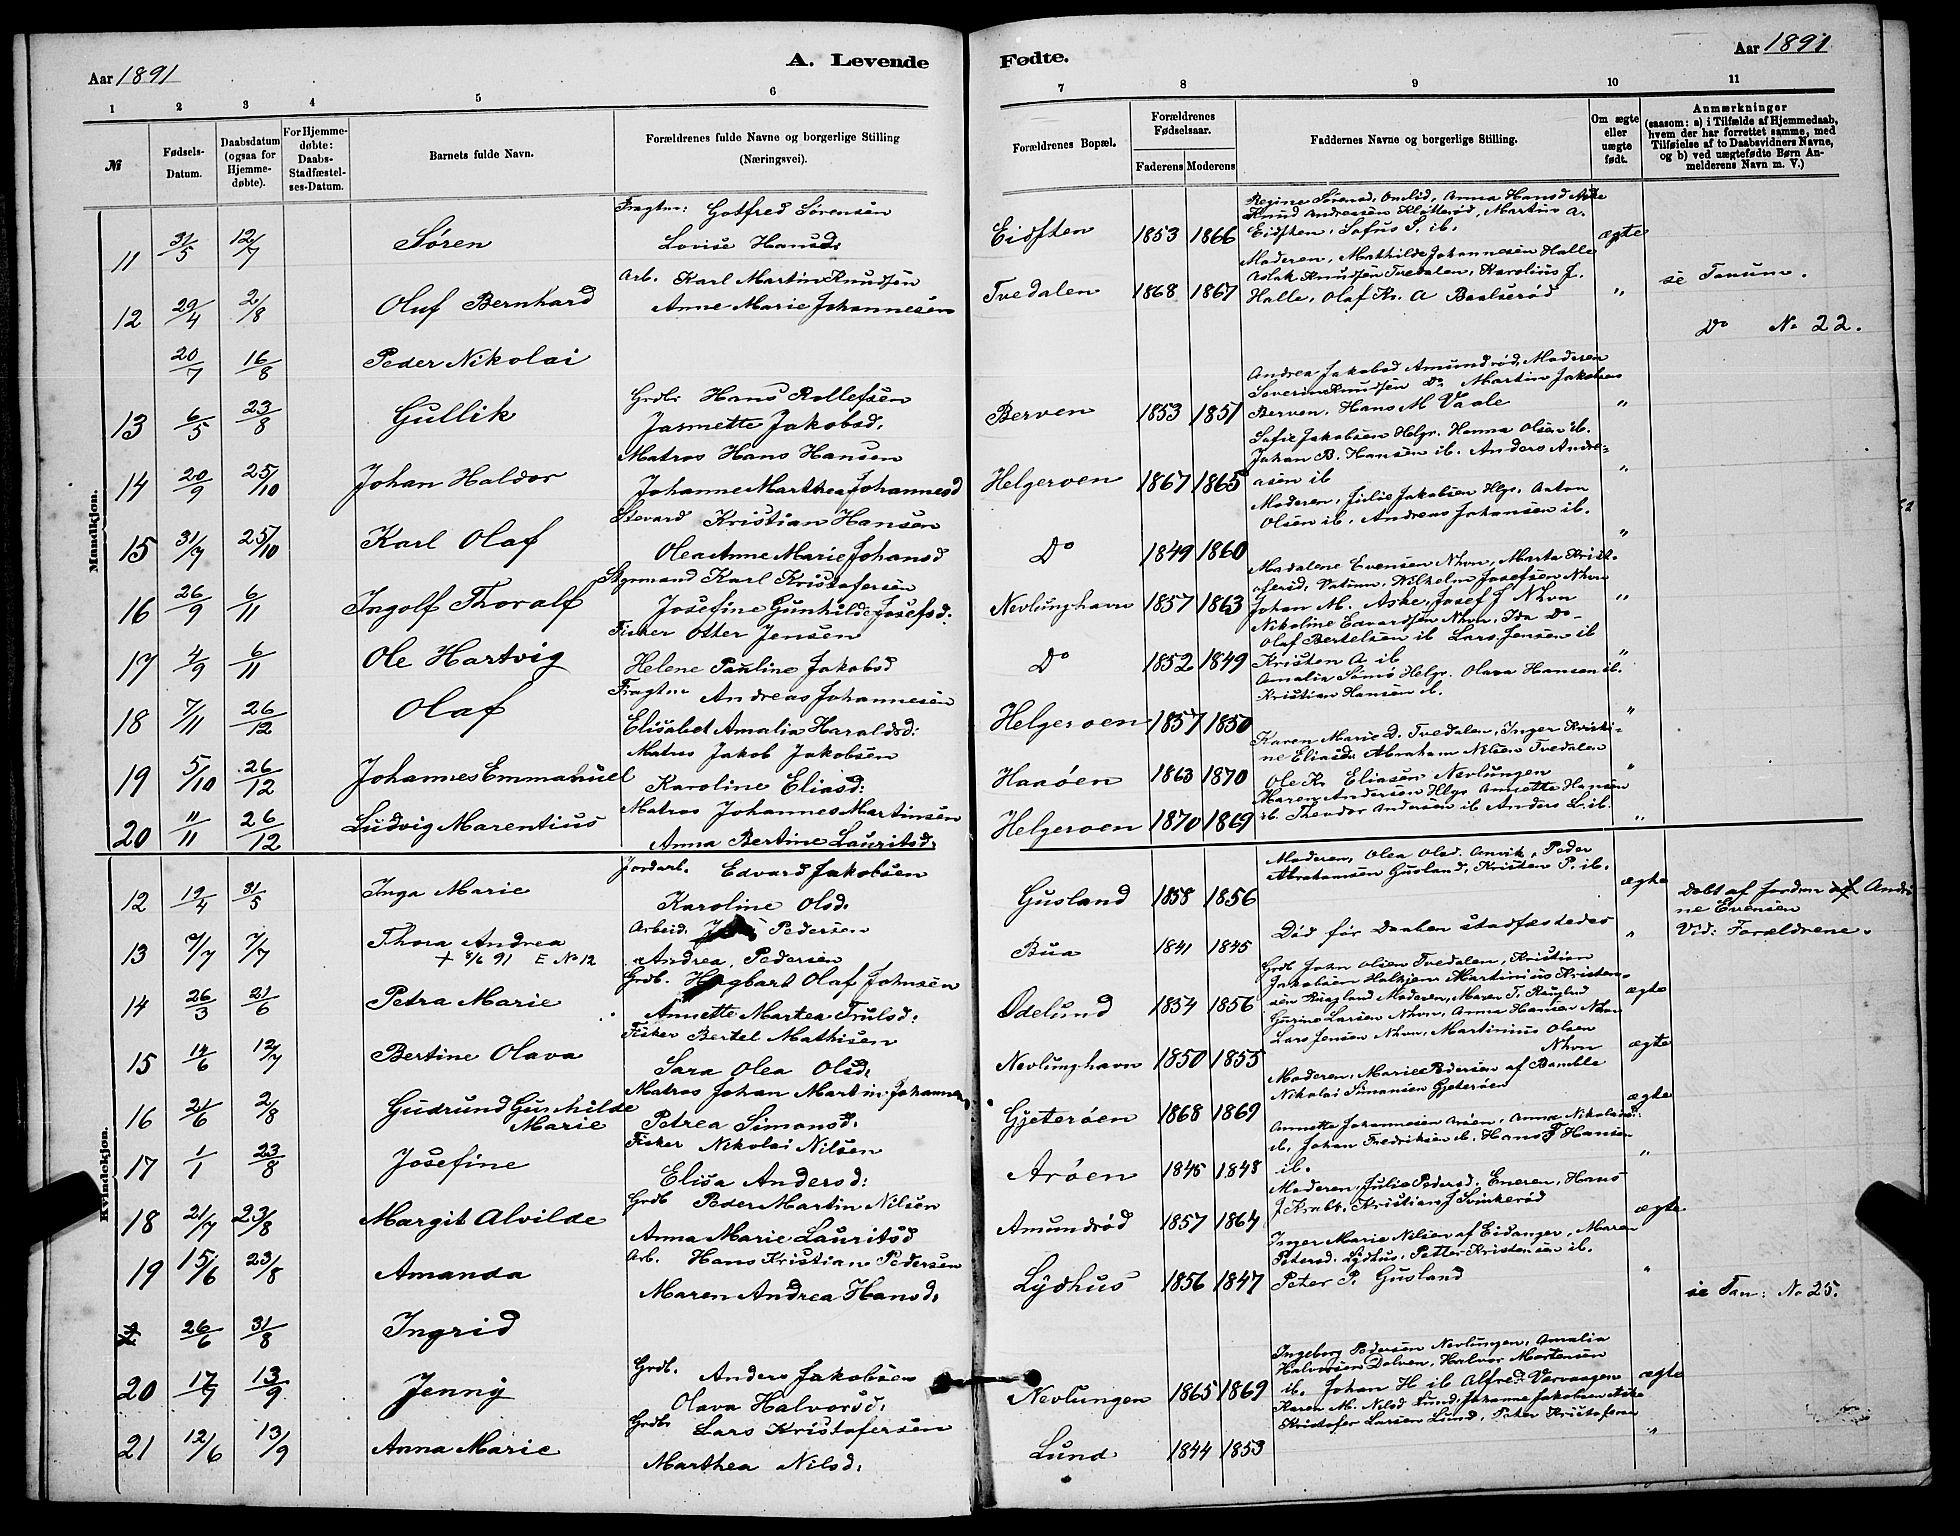 Aar 1891
A. Levende
1 2 3 4 5 6
№
Fødsels-Datum.
Daabsdatum (ogsaa for Hjemmedøbte).
For Hjemmedøbte: Daabs-Stadfæstelses-Datum.
Barnets fulde Navn.
Forældrenes fulde Navne og borgerlige Stilling (Næringsvei).
Mandkjøn.
Fragtm: Gotfred Sørensen
11 31/5 12/7 Søren Lovise Hansd:
Arb. Karl Martin Knudsen
12 29/4 2/8 Oluf Bernhard Anne Marie Johannesen
20/7 16/8 Peder Nikolai
Grdb: Hans Rollefsen
13 6/5 23/8 Gullik Jasmette Jakobsd.
Matros Hans Hansen
14 20/9 25/10 Johan Haldor Johanne Marthea Johannesd
Stevard Kristian Hansen
15 31/7 25/10 Karl Olaf Olea Anne Marie Johansd
Styrmand Karl Kristofersen
16 26/9 6/11 Ingolf Thoralf Josefine Gunhilde Josefsd.
Fisker Otter Jensen
17 4/9 6/11 Ole Hartvig Helene Pauline Jakobsd
Fragtm: Andreas Johannesen
18 7/11 26/12 Olaf Elisabet Amalia Haraldsd:
Matros Jakob Jakobsen
19 5/10 26/12 Johannes Emmanuel Karoline Eliasd:
Matros Johannes Martinsen
20 11/11 26/12 Ludvig Marentius Anna Bertine Lauritsd:
Kvindekjøn.
Jordarb. Edvard Jakobsen
12 19/4 31/5 Inga Marie Karoline Olsd.
Arbeid. Pedersen
13 7/7 Thora Andrea Andrea Pedersen
+ 8/6 91 E No 12
Grdb. Hagbart Olaf Johnsen
14 26/3 21/6 Petra Marie Annette Martea Trulsd:
Fisker Bertel Mathisen
15 14/6 12/7 Bertine Olava Sara Olea Olsd.
Matros Johan Martin Johannes
16 21/6 2/8 Gudrund Gunhilde Marie Petrea Simonsd.
Fisker Nikolai Nilsen
17 1/1 23/8 Josefine Elisa Andersd:
Grdb Peder Martin Nilsen
18 21/7 23/8 Margit Alvilde Anna Marie Lauritsd
Arb. Hans Kristian Pedersen
19 15/6 23/8 Amanda Maren Andrea Hansd.
26/6 31/8 Ingrid
Grdb. Anders Jakobsen
20 17/7 13/9 Jenny Olava Halvorsd.
Grdb: Lars Kristofersen
21 12/6 13/9 Anna Marie Marthea Nilsd.
Fødte.
Aar 1891
7 8 9 10 11
Forældrenes Bopæl.
Forældrenes Fødselsaar.
Faderens Moderens
Faddernes Navne og borgerlige Stilling.
Om ægte eller uægte født.
Anmærkninger (saasom: a) i Tilfælde af Hjemmedaab, hvem der har forrettet samme, med Tilføielse af to Daabsvidners Navne, og b) ved uægtefødte Børn Anmelderens Navn m. V.)
Regine Sørensd. Omlid, Anna Hansd Aske
Knud Andreassen Klåtterød, Martin A.
Eidsten 1853 1866 Eidsten, Sofus S. ib. ægte
Moderen, Mathilde Johannesen Halle
Aslak Knudsen Tvedalen, Karolius J.
Tvedalen 1868 1867 Halle, Olaf Kr. A Baalserød " se Tanum.
Do No 22.
Andrea Jakobsd Amundrød, Moderen
Severin Knudsen Do Martin Jakobsen
Berven 1853 1857 Berven, Hans M Vaale "
Sofie Jakobsen Helgr. Hanna Olsen ib.
Johan B. Hansen ib. Anders Andre-
Helgeroen 1867 1865 asen ib "
Moderen, Julie Jakobsen Hlgr. Anton
Olsen ib, Andreas Johansen ib.
Do 1849 1860 "
Madalene Evensen Nhvn, Marta Krist-
ofersd, Vatinn, Wilhelm Josefsen Nhvn
Nevlunghavn 1857 1863 Johan M. Aske, Josef J Nhvn "
Nikoline Edvardsen Nhvn, Ida Do
Olaf Bertelsen ib Lars Jensen ib
Do 1852 1849 Kristen A ib "
Amalia Semø Helgr. Olava Hansen ib.
Kristian Hansen ib.
Helgeroen 1857 1850 "
Karen Marie D. Tvedalen, Inger Kristi-
ne Eliasd: Abraham Nilsen Tvedalen
Haaøen 1863 1870 Ole Kr. Eliasen Nevlungen "
Maren Andersen Hlgr Annette Hansen
Helgeroen 1870 1869 ib. Theodor Andersen ib Anders L. ib. "
Moderen, Olea Olsd. Anvik, Peder
Abrahamsen Gusland, Kristen P. ib.
Gusland 1858 1856 ægte
Døbt af Jordem Andri-
ne Evensen
Vid: Forældrene.
Bua 1841 1845 Død før Daaben stadfæstedes "
Grdb John Olsen Tvedalen, Kristian
Jakobsen Halkjen Martinius Kristen-
Ødelund 1834 1856 sen Ringland Moderen, Maren T. Rauglud ægte
Gurine Larsen Nhvn, Anna Hansen Nhvn
Lars Jensen Nhvn, Martinius Olsen
Nevlunghavn 1850 1855 Nhvn ægte
Moderen, Marie Pedersen af Bamble
Nikolai Simonsen Gjeterøen
Gjeterøen 1868 1869 ægte
Annette Johannesen Arøen, Anna Nikolaisd.
ib, Johan Fredriksen ib, Hans J Hansen
Arøen 1845 1848 ib. "
Moderen, Julie Pedersd. Eneren, Hans
J Krabb. Kristian J Svinkerød
Amundrød 1857 1864 ægte
Inger Marie Nilsen af Eidanger, Maren
Petersd. Lydhus, Petter Kristensen ib.
Lydhus 1856 1847 Peter P. Gusland "
se Tan: No 25.
Ingeborg Pedersen Nevlungen, Amalia
Halvorsen Dolven, Halvor Mortensen
Nevlungen 1865 1869 ib. Johan H ib Alfred Varvaagen ægte
Karen M. Nilsd Lund, Johanne Jakobsen Aske
Kristofer Larsen Lund, Peter Kristofersen
Lund 1844 1853 "